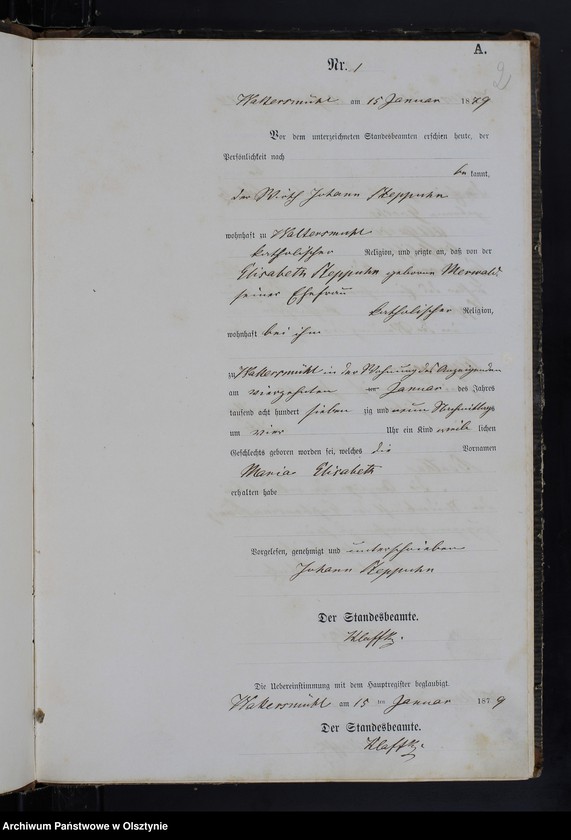 A.
Nr. 1
Waltersmühl am 15 Januar 1879
Vor dem unterzeichneten Standesbeamten erschien heute, der
Persönlichkeit nach
be kannt,
der Wirth Johann
wohnhaft zu Waltersmühl
katholischer Religion, und zeigte an, daß von der
Elisabeth geborne Merwald
seiner Ehefrau
katholischer Religion,
wohnhaft bei ihm
zu Waltersmühl in der Wohnung des Anzeigenden
am vierzehnten Januar des Jahres
tausend acht hundert sieben zig und neun Nachmittags
um vier Uhr ein Kind weib lichen
Geschlechts geboren worden sei, welches die Vornamen
Maria Elisabeth
erhalten habe
Vorgelesen, genehmigt und unterschrieben
Johann
Der Standesbeamte.
Die Uebereinstimmung mit dem Hauptregister beglaubigt.
Waltersmühl am 15 ten Januar 1879
Der Standesbeamte.
Archiwum Państwowe w Olsztynie